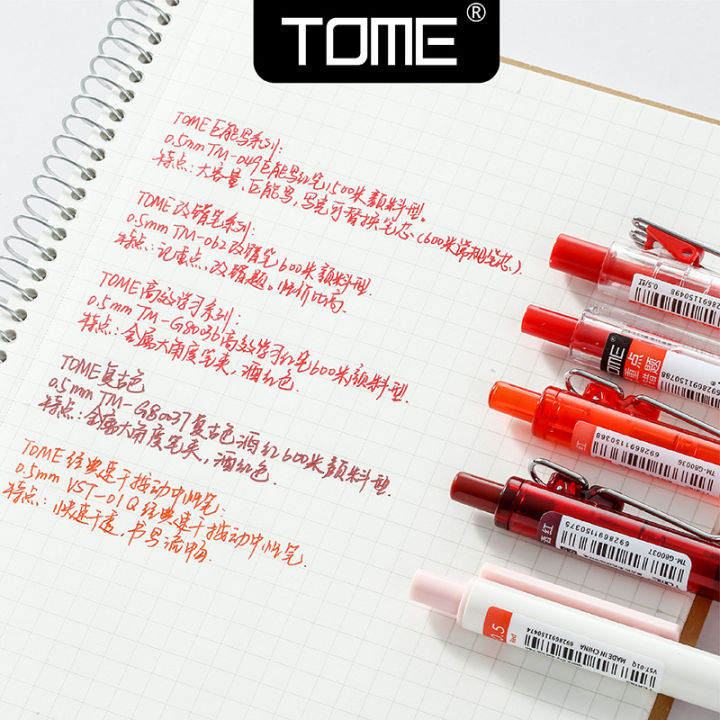 TOME®
TOME巨能写系列:
0.5mm TM-049巨能写红笔1500米颜料型。
特点:大容量、巨能写,写完可替换笔芯、(600米常规笔芯)
TOME改错笔系列:
0.5mm TM-062改错笔600米颜料型
特点:记重点、改错题。性价比高
TOME高效学习系列:
0.5mm TM-G80036高效学习红笔600米颜料型
特点:金属大角度笔夹,酒红色.
TOME复古色
0.5mm TM-G80037复古色酒红600米颜料型
特点:金属大角度笔夹,酒红色
TOME经典速干按动中性笔
0.5mm VST-01Q经典速干按动中性笔
特点:快速干爽,书写流畅
0.5/红
6928691150498
TOME
重点
错题
6928691150788
红
6928691150368
TM-G80036
酒红
6928691150375
TM-G80037
0.5
Red
6928691150474
MADE IN CHINA
VST-01Q